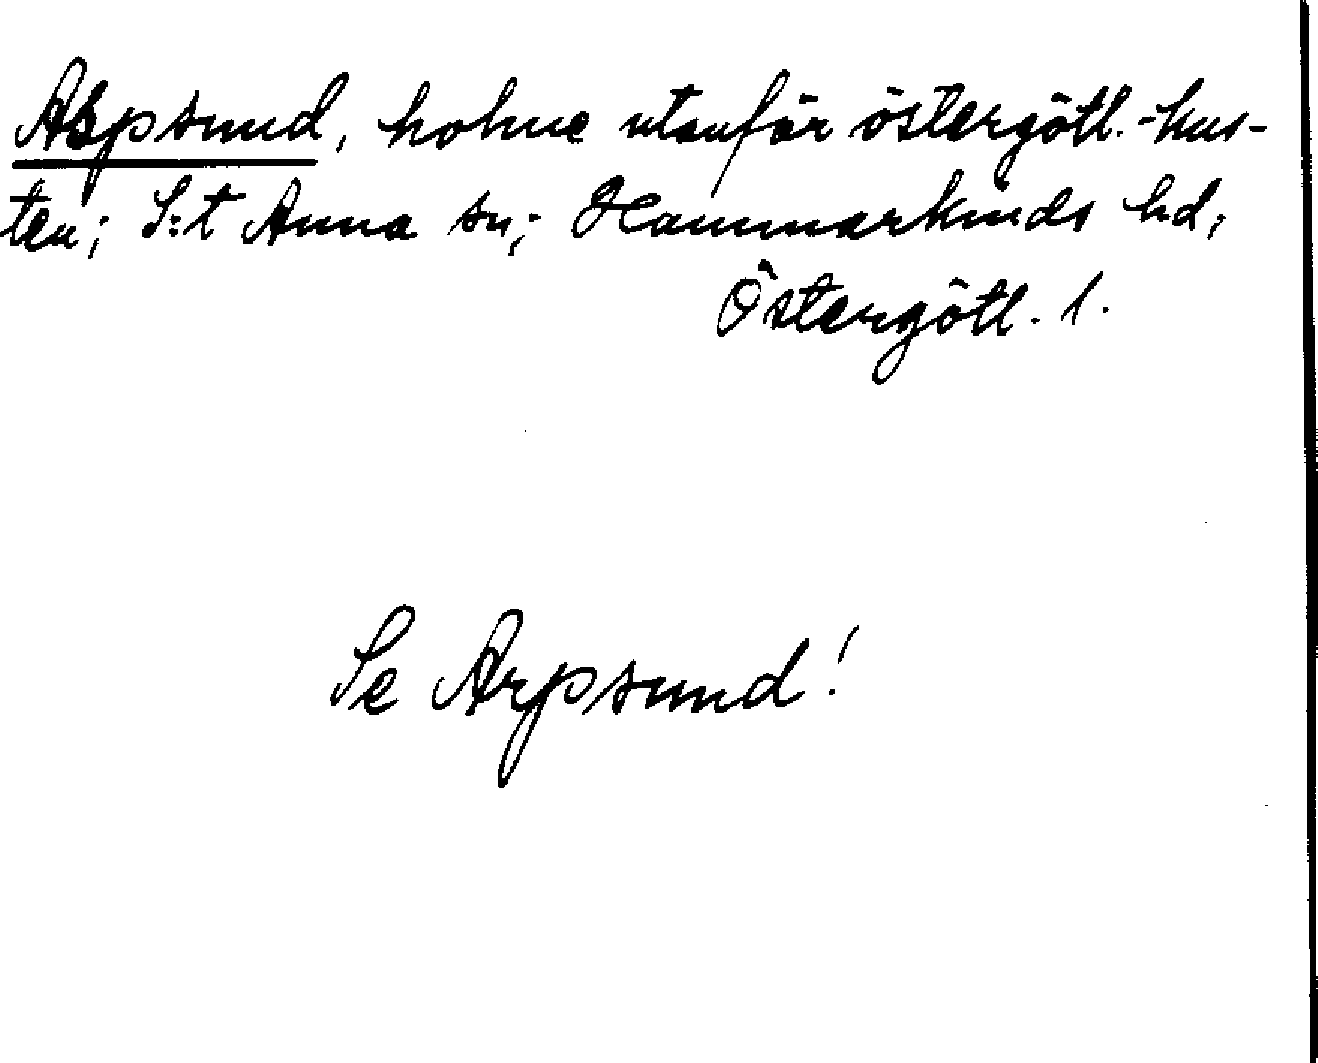 Aspsund, holme utanför östergötl.-kus-
ten; S:t Anna sn; Hammarkinds hd;
Östergötl. l.
Se Arpsund!